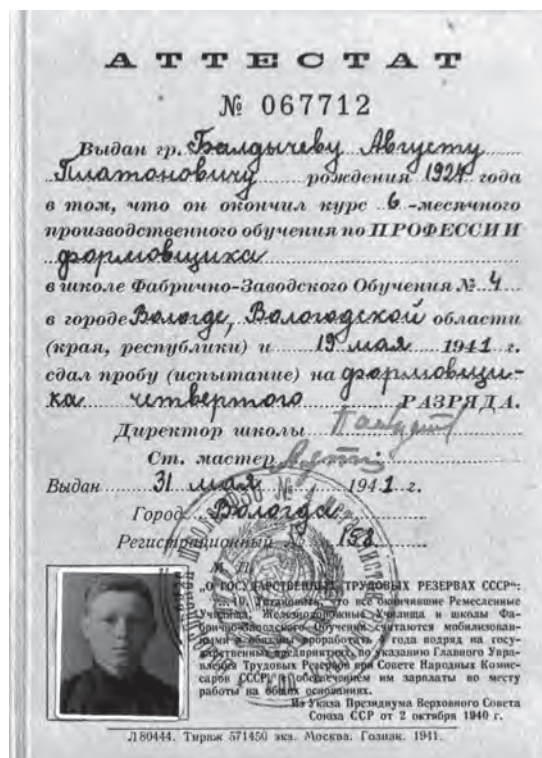 АТТЕСТАТ
№ 067712
Выдан гр. Балдычеву Августу
Платоновичу рождения 1924 года
в том, что он окончил курс 6-месячного
производственного обучения по ПРОФЕССИИ
формовщика
в школе Фабрично-Заводского Обучения № 4
в городе Вологде, Вологодской области
(края, республики) и 19 мая 1941 г.
сдал пробу (испытание) на формовщи-
ка четвертого РАЗРЯДА.
Директор школы
Ст. мастер
Выдан 31 мая 1941 г.
Город Вологда
Регистрационный № 158
М. П.
„О ГОСУДАРСТВЕННЫХ ТРУДОВЫХ РЕЗЕРВАХ СССР“:
10. Установить, что все окончившие Ремесленные
Училища, Железнодорожные Училища и школы Фа-
брично-Заводского Обучения считаются мобилизован-
ными и обязаны проработать 4 года подряд на госу-
дарственных предприятиях, по указанию Главного Упра-
вления Трудовых Резервов при Совете Народных Комис-
саров СССР, с обеспечением им зарплаты по месту
работы на общих основаниях.
Из Указа Президиума Верховного Совета
Союза ССР от 2 октября 1940 г.
Л80444. Тираж 571450 экз. Москва. Гознак. 1941.